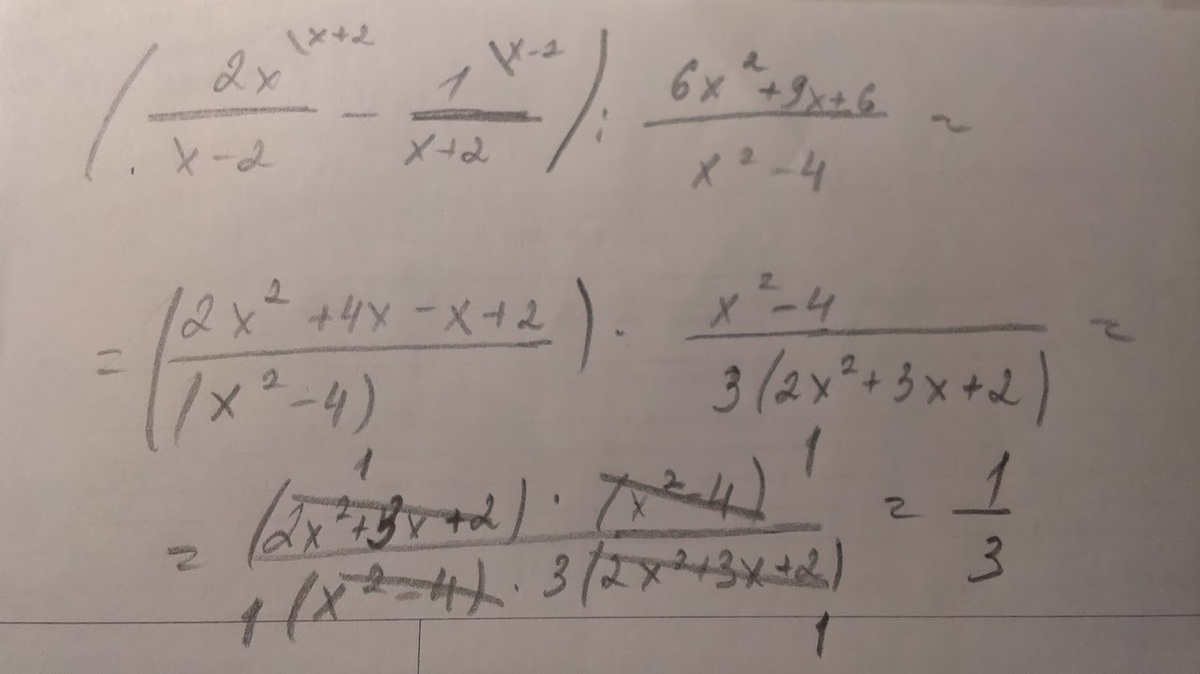 ( 2x \x+2 / x-2 - 1 \x-2 / x+2 ) : 6x² + 9x + 6 / x² - 4 =
= ( 2x² + 4x - x + 2 / (x² - 4) ) · x² - 4 / 3(2x² + 3x + 2) =
= 1 (2x² + 3x + 2) · (x² - 4) 1 / 1 (x² - 4) · 3(2x² + 3x + 2) 1 = 1/3